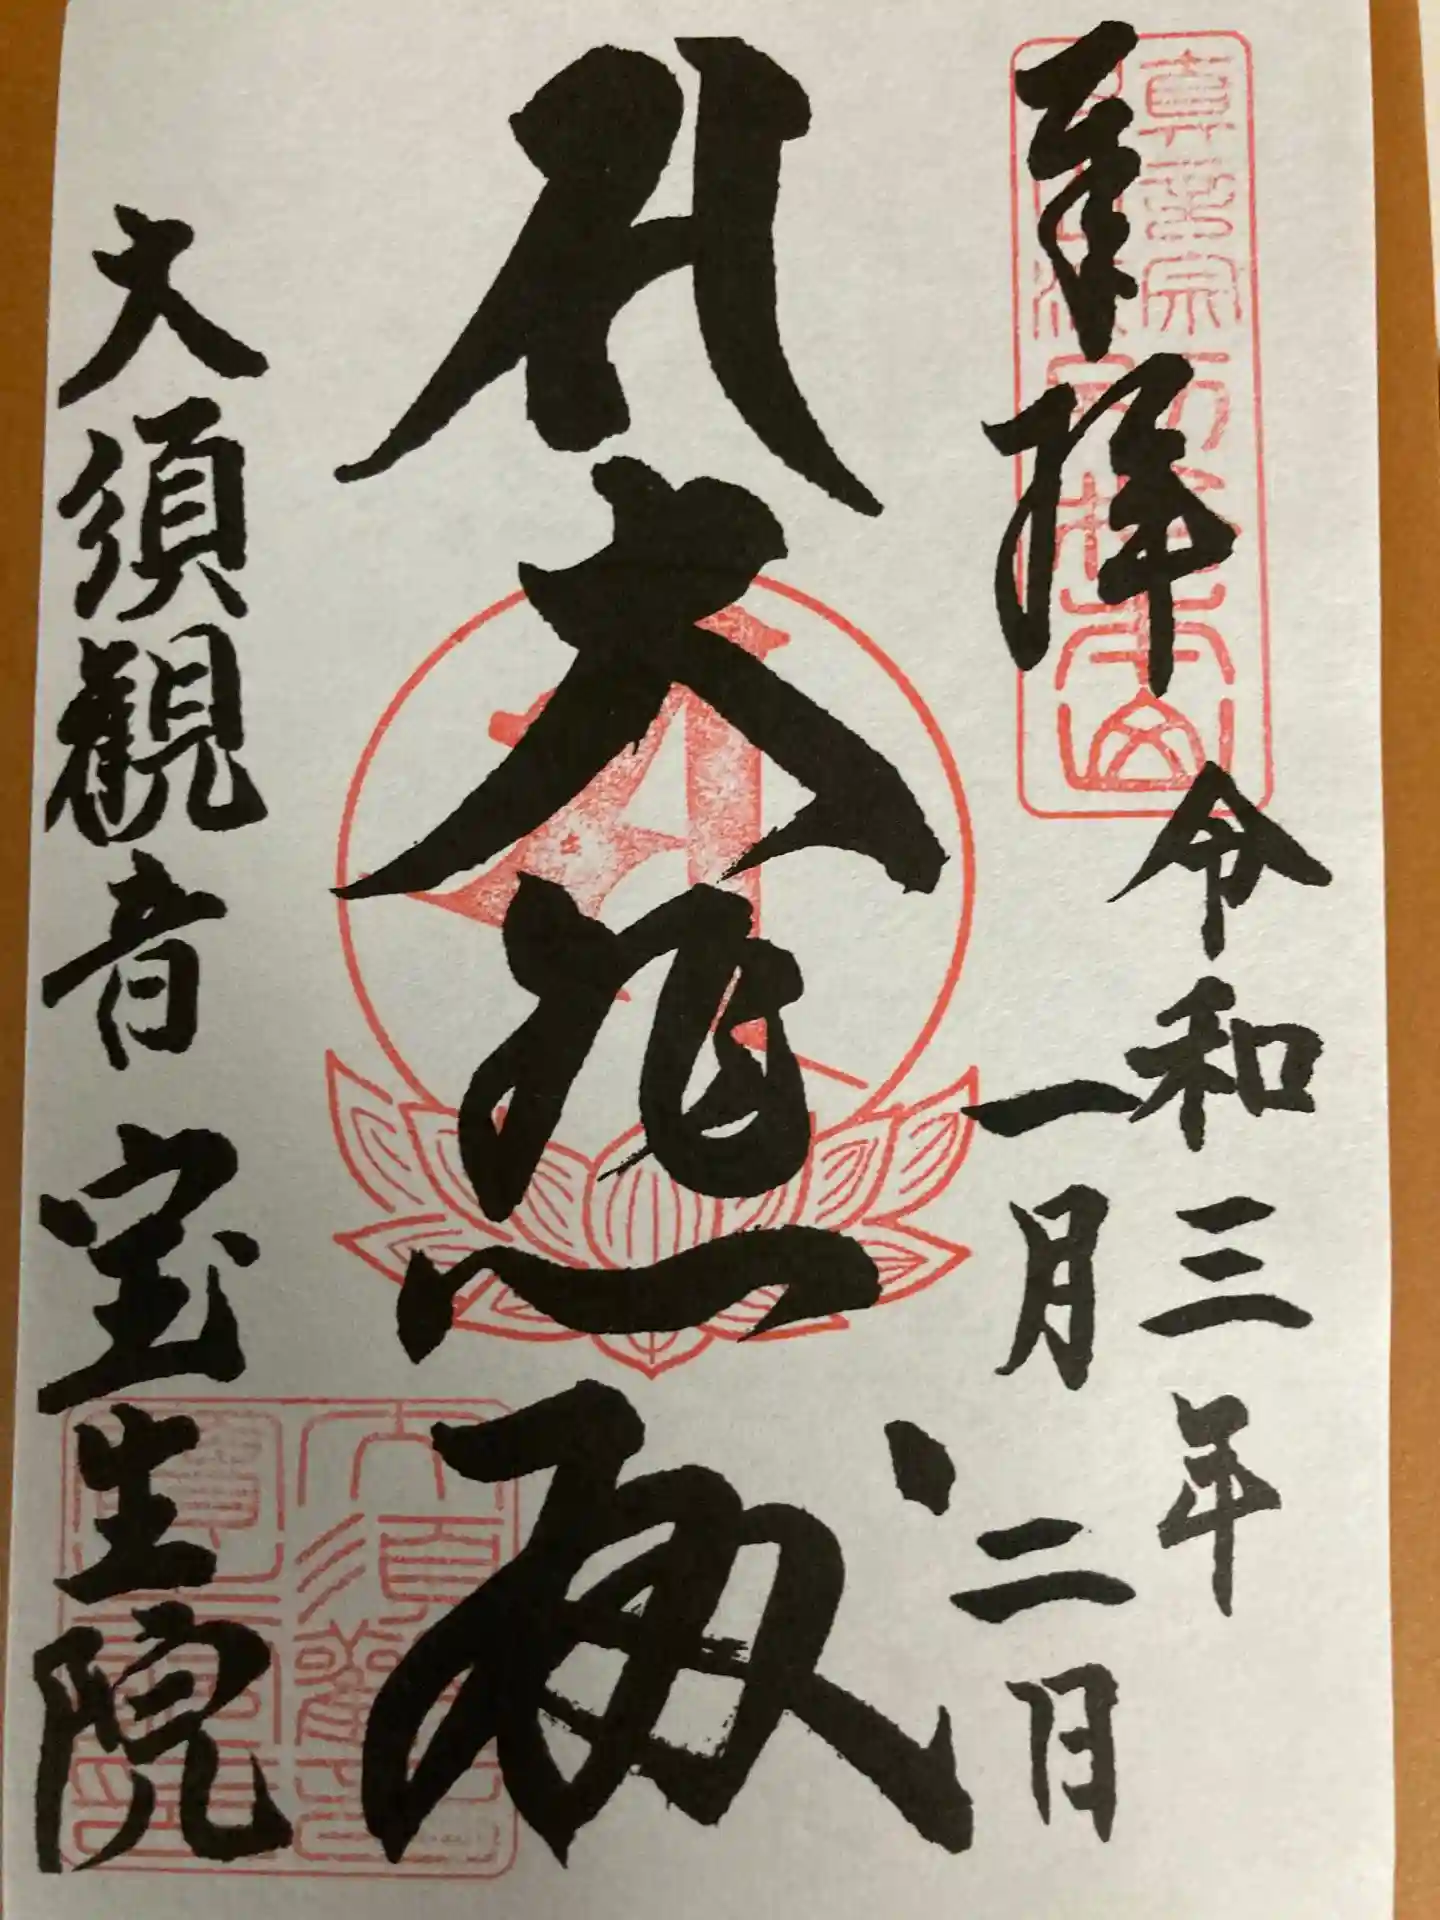 奉拝
令和三年
一月二日
大悲殿
大須観音 宝生院
真言宗
別格本山
大須観音